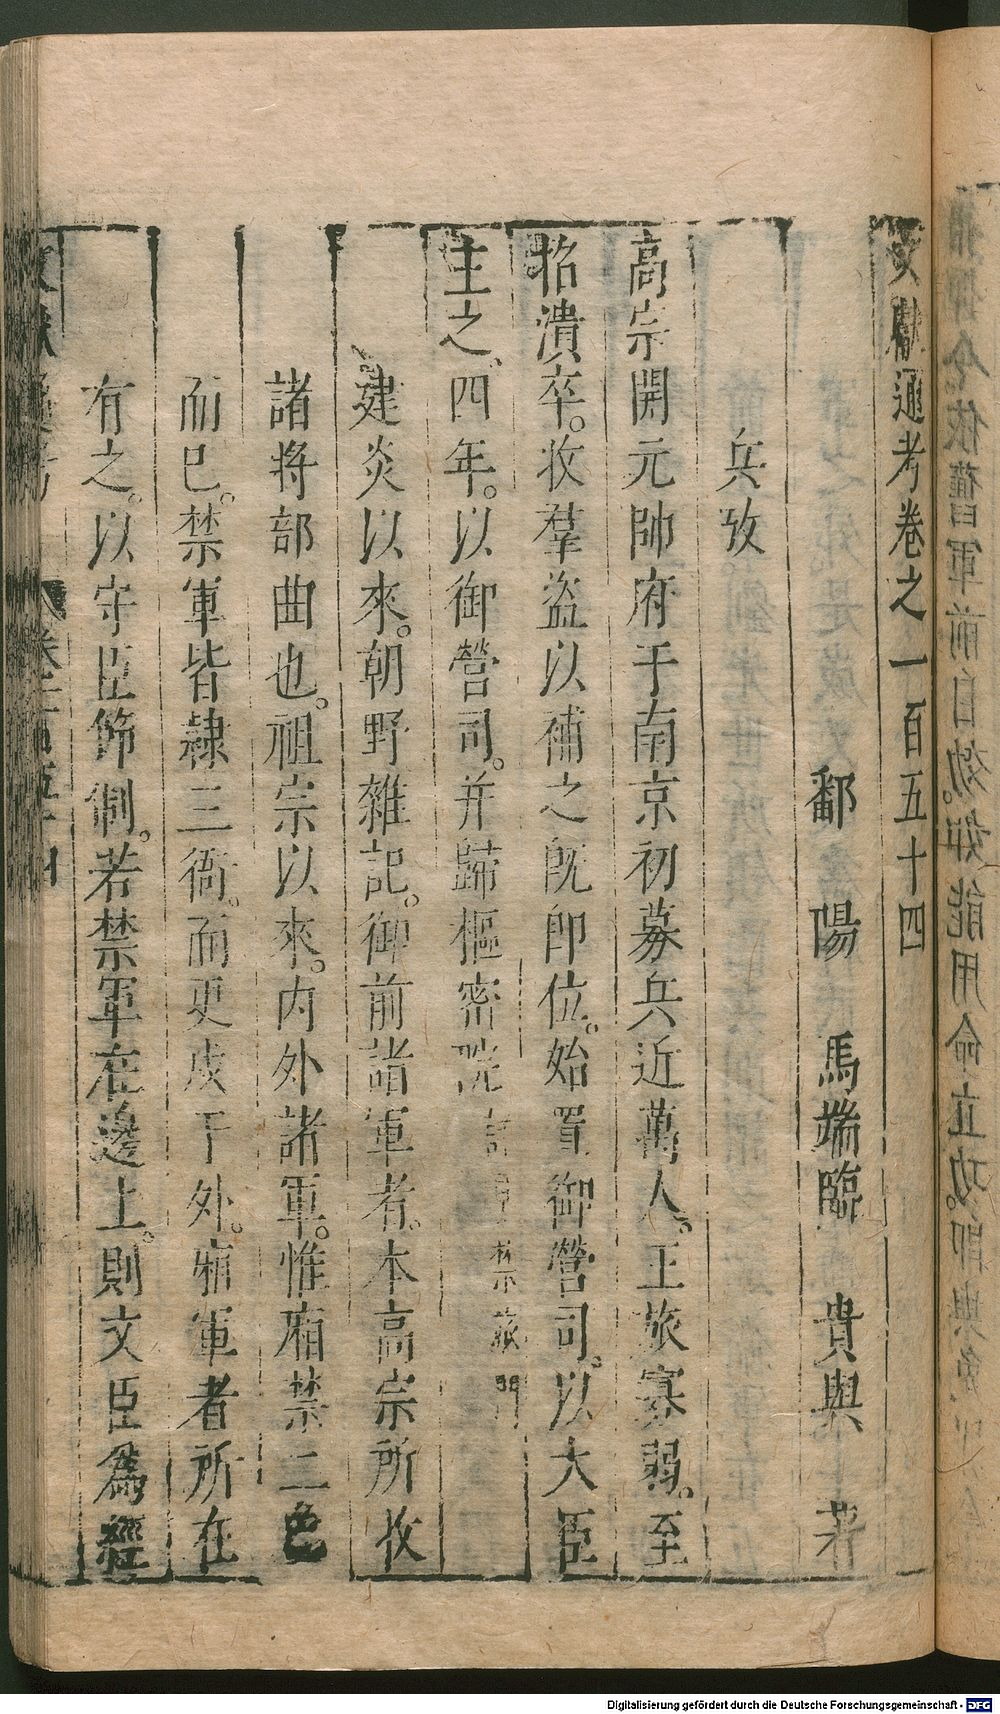 文獻通考卷之一百五十四
鄱陽 馬端臨 貴與 著
兵攷
高宗開元帥府于南京初募兵近萬人。王旅寡弱。至
招潰卒。收羣盜以補之旣卽位。始置御營司。以大臣
主之、四年。以御營司。并歸樞密院
禁旅門
建炎以來。朝野雜記。御前諸軍者。本高宗所收
諸將部曲也。祖宗以來。内外諸軍。惟廂禁二色
而巳。禁軍皆隷三衙。而更戍于外。廂軍者所在
有之。以守臣節制。若禁軍在邊上。則文臣爲經
Digitalisierung gefördert durch die Deutsche Forschungsgemeinschaft - DFG